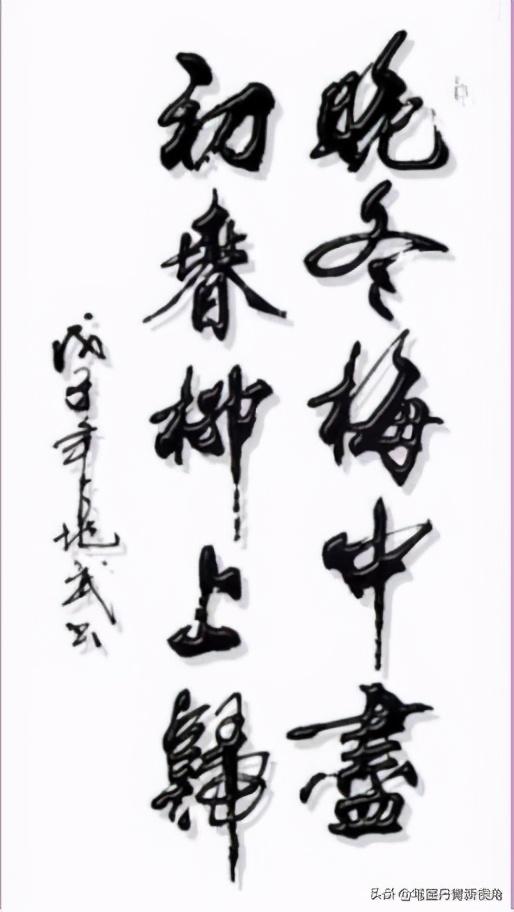 晚冬梅中盡
初春柳上歸
戊子年
头条